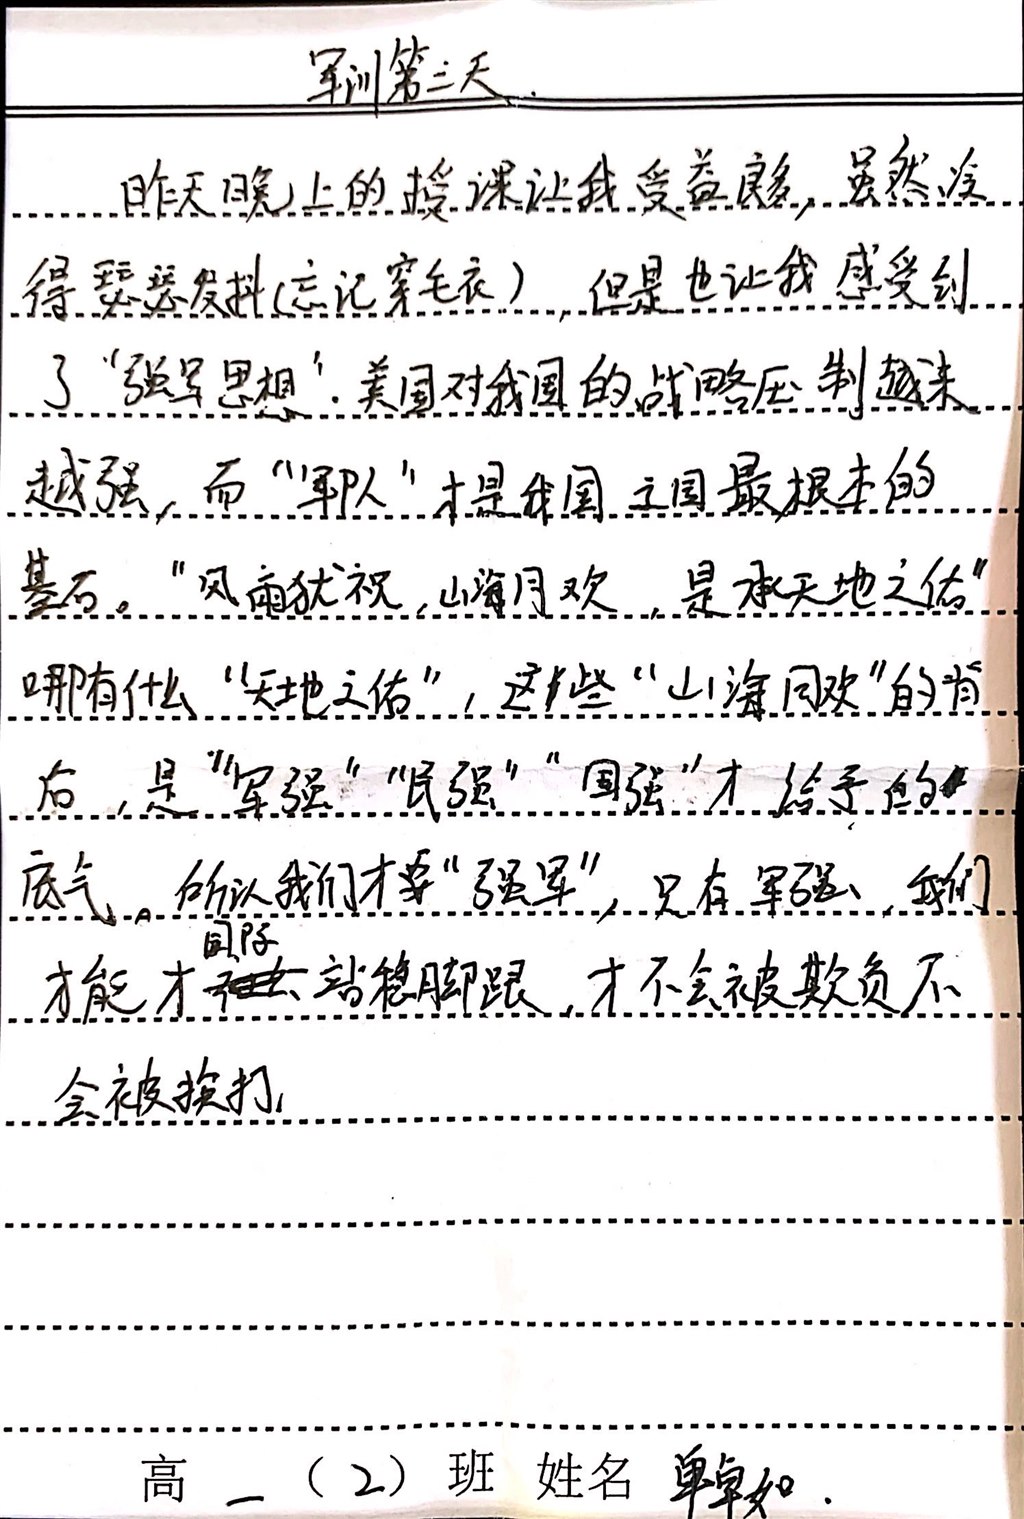 军训第三天.
昨天晚上的授课让我受益良多,虽然冷
得瑟瑟发抖(忘记穿毛衣),但是也让我感受到
了“强军思想”.美国对我国的战略压制越来
越强,而“军队”才是我国立国最根本的
基石。“风雨犹祝,山海同欢,是承天地之佑”
哪有什么“天地之佑”,这些“山海同欢”的背
后,是“军强”“民强”“国强”才给予的
底气。所以我们才要“强军”,只有军强,我们
才能才国际站稳脚跟,才不会被欺负不
会被挨打,
高一(2)班 姓名 单卓如.